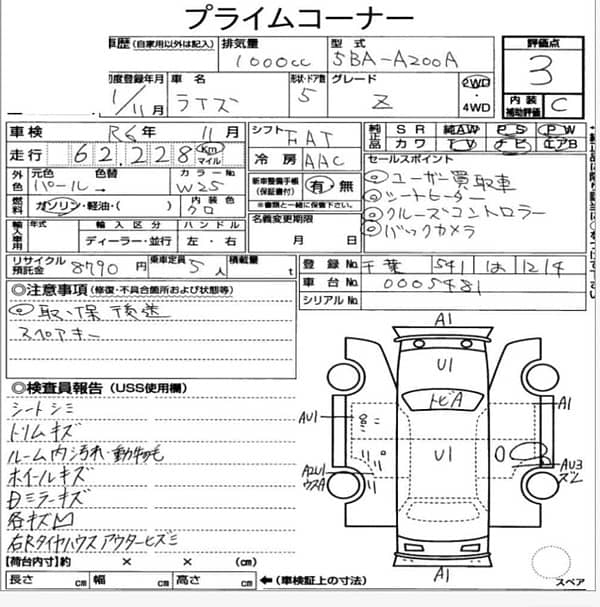 プライムコーナー
車歴 (自家用以外は記入) 排気量 1000cc 型式 5BA-A200A 評価点 3
初度登録年月 1/11月 車名 ライズ 形状・ドア数 5 グレード Z 2WD・4WD 内装補助評価 C
車検 R6年 11月 シフト FAT 純正品 SR 純AW PS PW
カワ TV ナビ エアB
走行 62,228 Km マイル 冷房 AAC セールスポイント
外色 元色 パール 色替 → カラーNo W25 新車整備手帳(保証書付) 有・無
※書類と一緒に保管下さい。
◎ユーザー買取車
◎シートヒーター
◎クルーズコントロラー
◎バックカメラ
燃料 ガソリン・軽油・( ) 内装色 クロ 名義変更期限 月 日
輸入車用 年式 輸入区分 ハンドル
ディーラー・並行 左・右
リサイクル預託金 8790円 乗車定員 5人 積載量 t
登録No. 千葉 541 は 1214
車台No. 0005481
シリアルNo.
◎注意事項 (修復・不具合箇所および状態等)
◎取、保 後送
スペアキー
◎検査員報告 (USS使用欄)
シートシミ
トリムキズ
ルーム内汚れ・動物毛
ホイールキズ
Dミラーキズ
各キズ凹
右Rタイヤハウスアウターヒズミ
A1
U1
トビA
AU1
A1
U1
A2U1
ウスA
AU3
ズレ
A1
スペア
【荷台内寸】約 × × (cm)
長さ cm 幅 cm 高さ cm ←(車検証上の寸法)